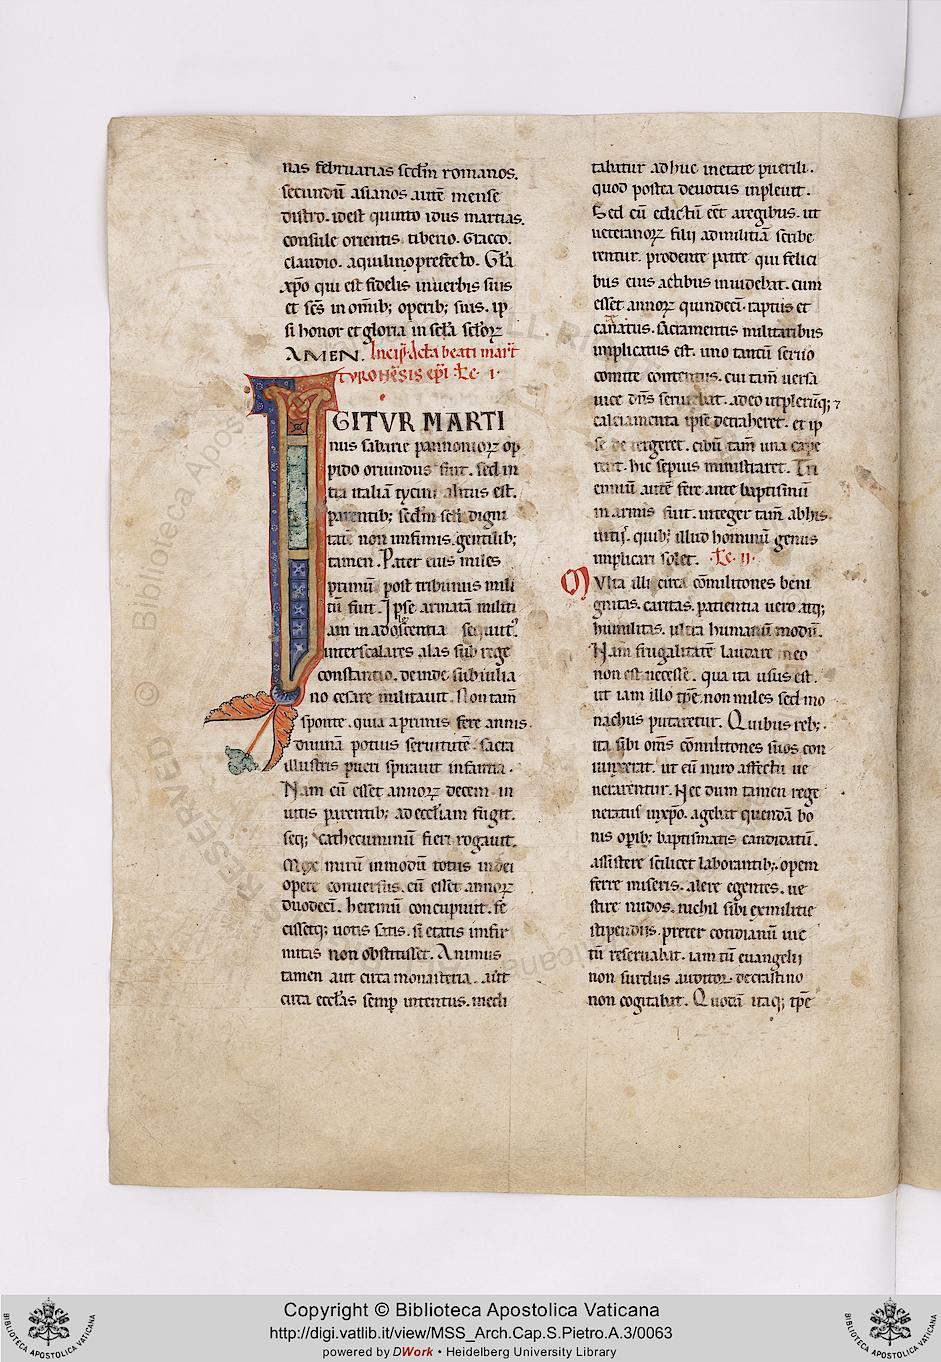 nas februarias scdm romanos.
secundū asianos autē mense
distro. idest quinto idus martias.
consule orientis tiberio. Gracco.
claudio. aquilino prefecto. Gła
xp̄o qui est fidelis in uerbis suis
et scs̄ in om̄ib; operib; suis. ip
si honor et gloria in scła scłorꝝ
AMEN. Incip̄. Acta beati mart̄
TYRONĒSIS ep̄i .Lc. I.
IGITVR MARTI
nus sabarie pannoniorꝝ op
pido oriundus fuit. sed in
tra italiā tycini alitus est.
parentib; scdm scłi digni
tatē non infimis. gentilib;
tamen. Pater eius miles
primū post tribunus mili
tū fuit. Ipse armatā militi
am in adolescentia sequut᷒.
inter scalares alas sub rege
constantio. deinde sub iulia
no cesare militauit. Non tam̄
sponte. quia a primis fere annis.
diuinā potius seruitutē. sacra
illustris pueri spirauit infantia.
Nam cū esset annorꝝ decem. in
uitis parentib; ad ecclīam fugit.
seq; cathecuminū fieri rogauit.
Mox mirū in modū totus in dei
opere conuersus. cū esset annorꝝ
duodecī. heremū concupiuit. fe
cissetq; uotis satis. si etatis infir
mitas non obstitisset. Animus
tamen aut circa monasteria. aut
circa eccłas semp intentus. medi
tabatur ad huc in etate puerili.
quod postea deuotus inpleuit.
Sed cū edictū eēt a regibus. ut
ueteranorꝝ filii ad militiā scribe
rentur. prodente patre qui felici
bus eius actibus inuidebat. cum
esset annorꝝ quindecī. raptus et
catenatus. sacramentis militaribus
implicatus est. uno tantū seruo
comite contentus. cui tam̄ uersa
uice dn̄s seruiebat. adeo ut plerūq; ⁊
calciamenta ipse detraheret. et ip
se detergeret. cibū tam̄ una cape
rent. hic sepius ministraret. Tri
enniū autē fere ante baptismū
in armis fuit. integer tam̄ ab his.
uitijs. quib; illud hominū genus
implicari solet. .Lc. II.
MVlta illi circa cōmilitones beni
gnitas. caritas. patientia uero atq;
humilitas. ultra humanū modū.
Nam frugalitatē laudare in eo
non est necesse. qua ita usus est.
ut iam illo tp̄e. non miles sed mo
nachus putaretur. Quibus reb;.
ita sibi om̄s cōmilitones suos con
iunxerat. ut eū miro affectu ue
nerarentur. Nec dum tamen rege
neratus in xp̄o. agebat quendā bo
nis oꝑib; baptismatis candidatū.
assistere scilicet laborantib;. opem
ferre miseris. alere egentes. ue
stire nudos. nichil sibi ex militie
stipendijs. preter cotidianū uic
tū reseruabat. iam tū euangelii
non surdus auditor. de crastino
non cogitabat. Quodā itaq; tp̄e
© Biblioteca Apostolica Vaticana
ALL RIGHTS RESERVED
Copyright © Biblioteca Apostolica Vaticana
http://digi.vatlib.it/view/MSS_Arch.Cap.S.Pietro.A.3/0063
powered by DWork • Heidelberg University Library
BIBLIOTECA APOSTOLICA VATICANA
BIBLIOTECA APOSTOLICA VATICANA